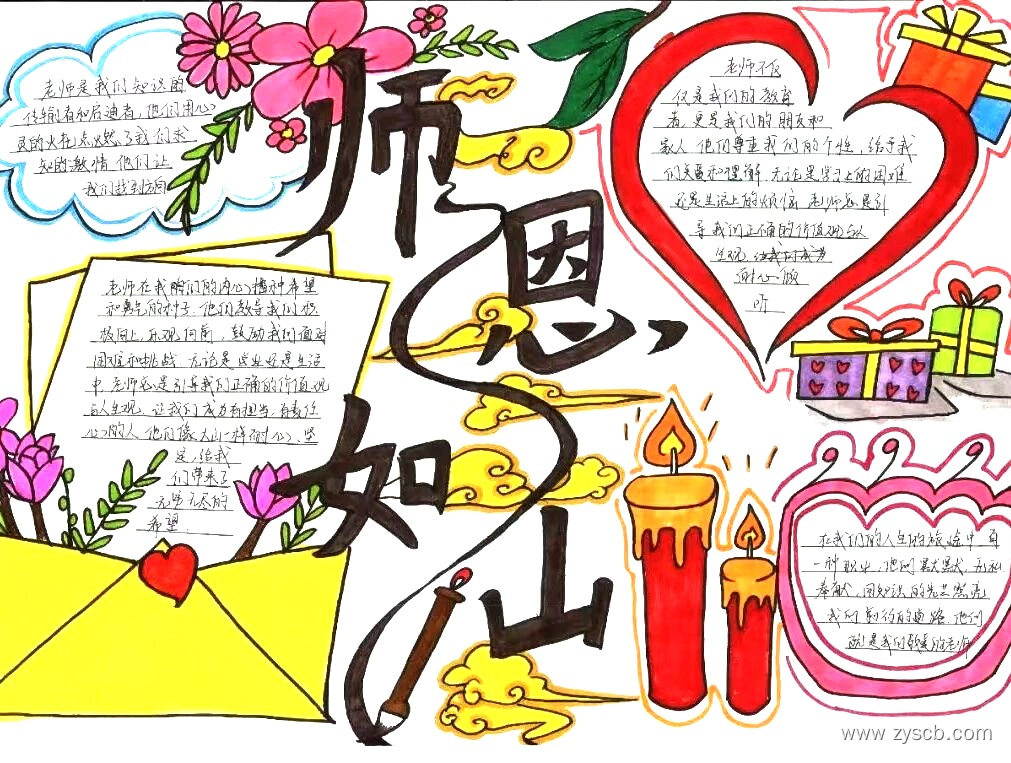 老师是我们知识的
传输者和启迪者,他们用心
灵的火花点燃了我们求
知的激情,他们让
我们找到方向
师恩如山
老师不仅
仅是我们的教育
者,更是我们的朋友和
家人,他们尊重我们的个性,给予我
们关爱和理解,无论是学习上的困难
还是生活上的烦恼,老师总是引
导我们正确的价值观与人
生观,
耐心倾
听
老师在我们的内心播种希望
和勇气的种子,他们教导我们积
极向上,乐观向前,鼓励我们面对
困难和挑战,无论是学业还是生活
中,老师总是引导我们正确的价值观
与人生观,让我们成为有担当,有责任
心的人,他们像大山一样耐心、坚
定,给我
们带来了
无穷无尽的
希望.
在我们的人生的旅途中,有
一种职业,他们默默,无私
奉献,用知识的光芒照亮
我们前行的道路,他们
就是我们敬爱的老师
www.zyscb.com